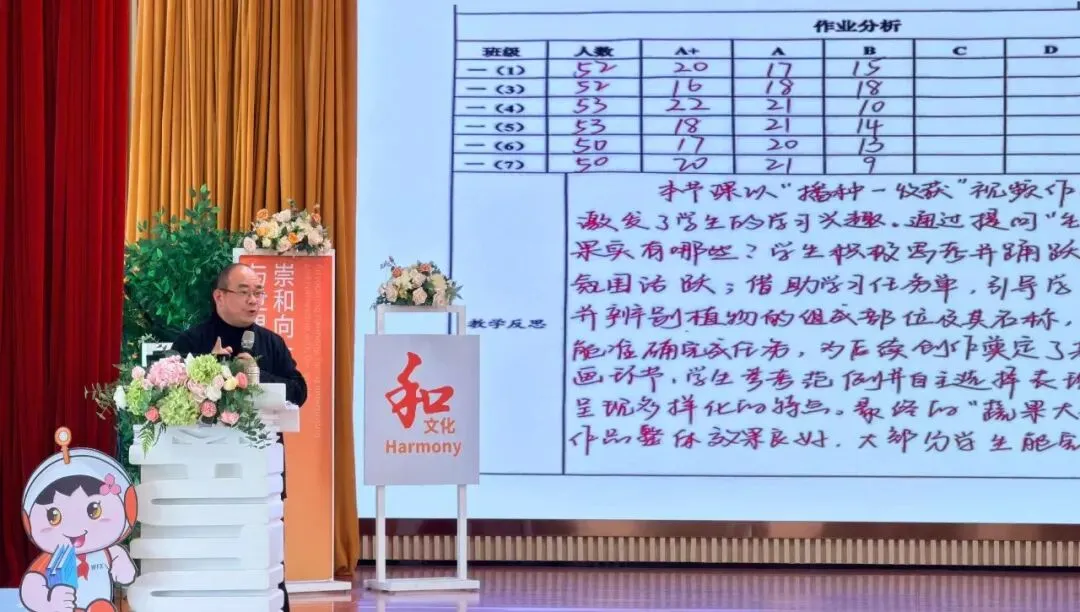 作业分析
班级 人数 A+ A B C D
一（1） 52 20 17 15
一（3） 52 16 18 18
一（4） 53 22 21 10
一（5） 53 18 21 14
一（6） 50 17 20 13
一（7） 50 20 21 9
教学反思
本节课以“播种一收获”视频作
激发了学生的学习兴趣。通过提问“生
果实有哪些？学生积极思考并踊跃
氛围活跃；借助学习任务单，引导学
并辨别植物的组成部位及其名称，
能准确完成任务，为后续创作奠定了
画环节，学生参考范例并自主选择表现
呈现多样化的特点。最终的“蔬果大
作品整体效果良好，大部分学生能
崇和向
和
文化
Harmony